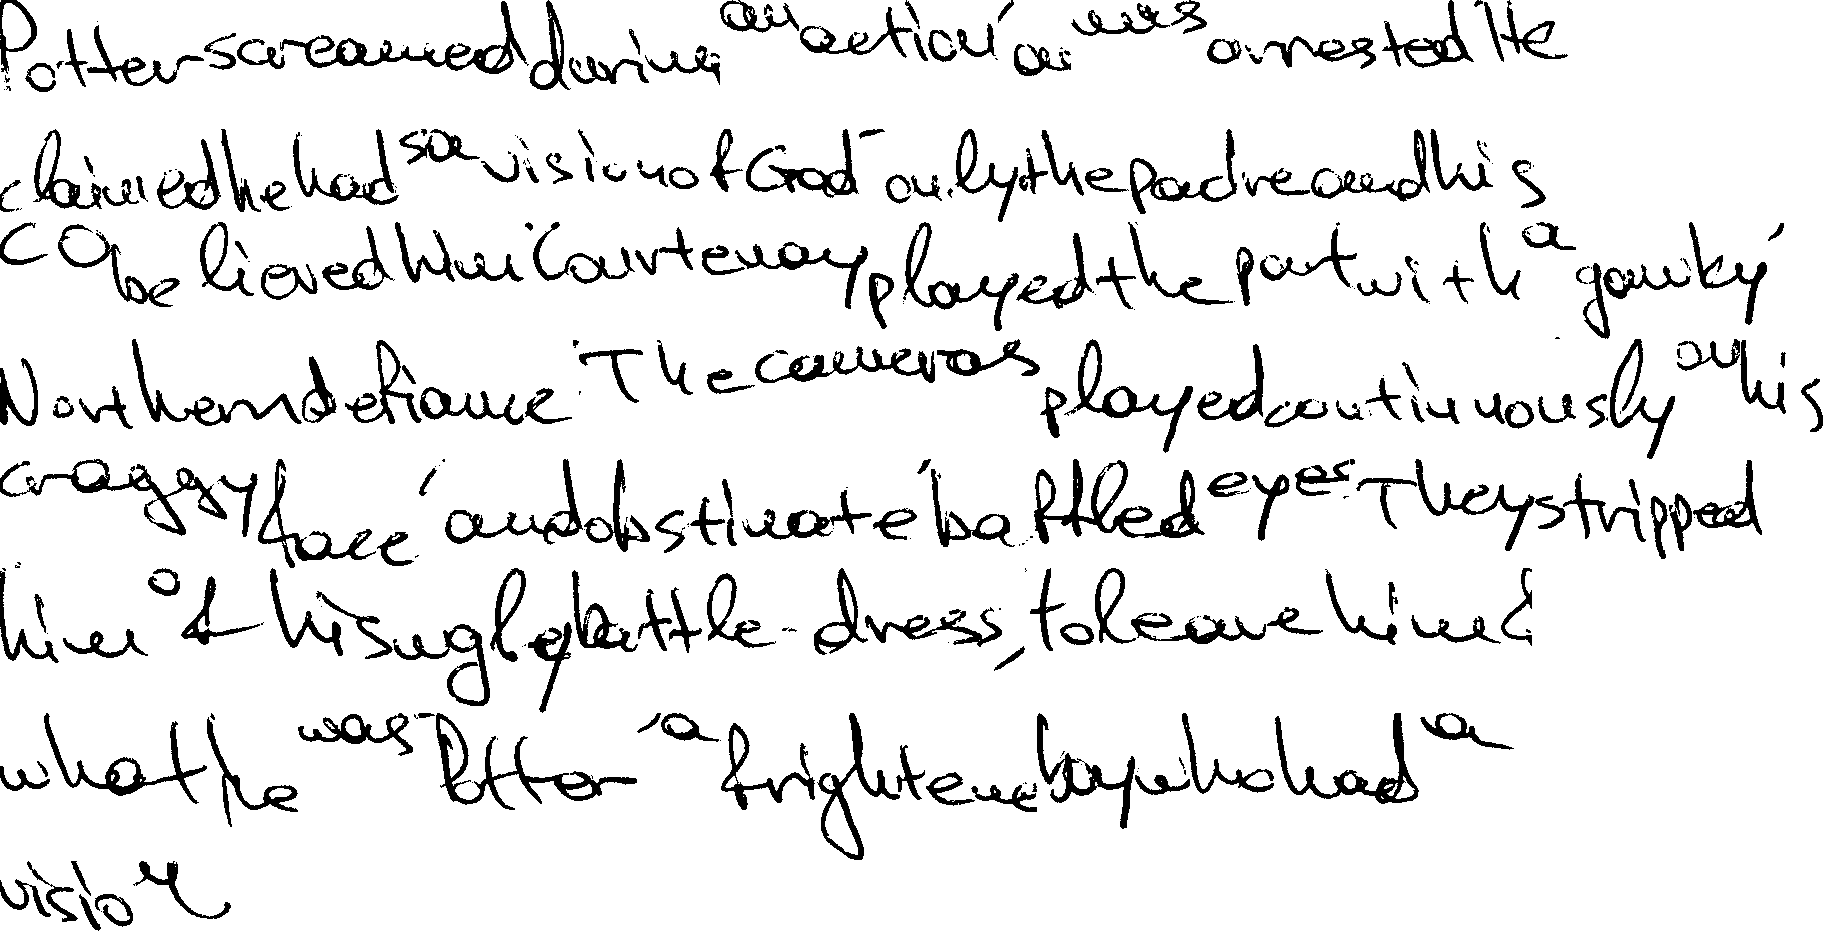 Potter screamed during an action an was arrested He
claimed he had sa vision of God only the padre and his
CO believed him Courtenay played the part with a gawky
Northern defiance The cameras played continuously on his
craggy face and obstinate baffled eyes. They stripped
him of his ugly battle-dress, to leave him
what he was Potter a frightened boy who had a
vision